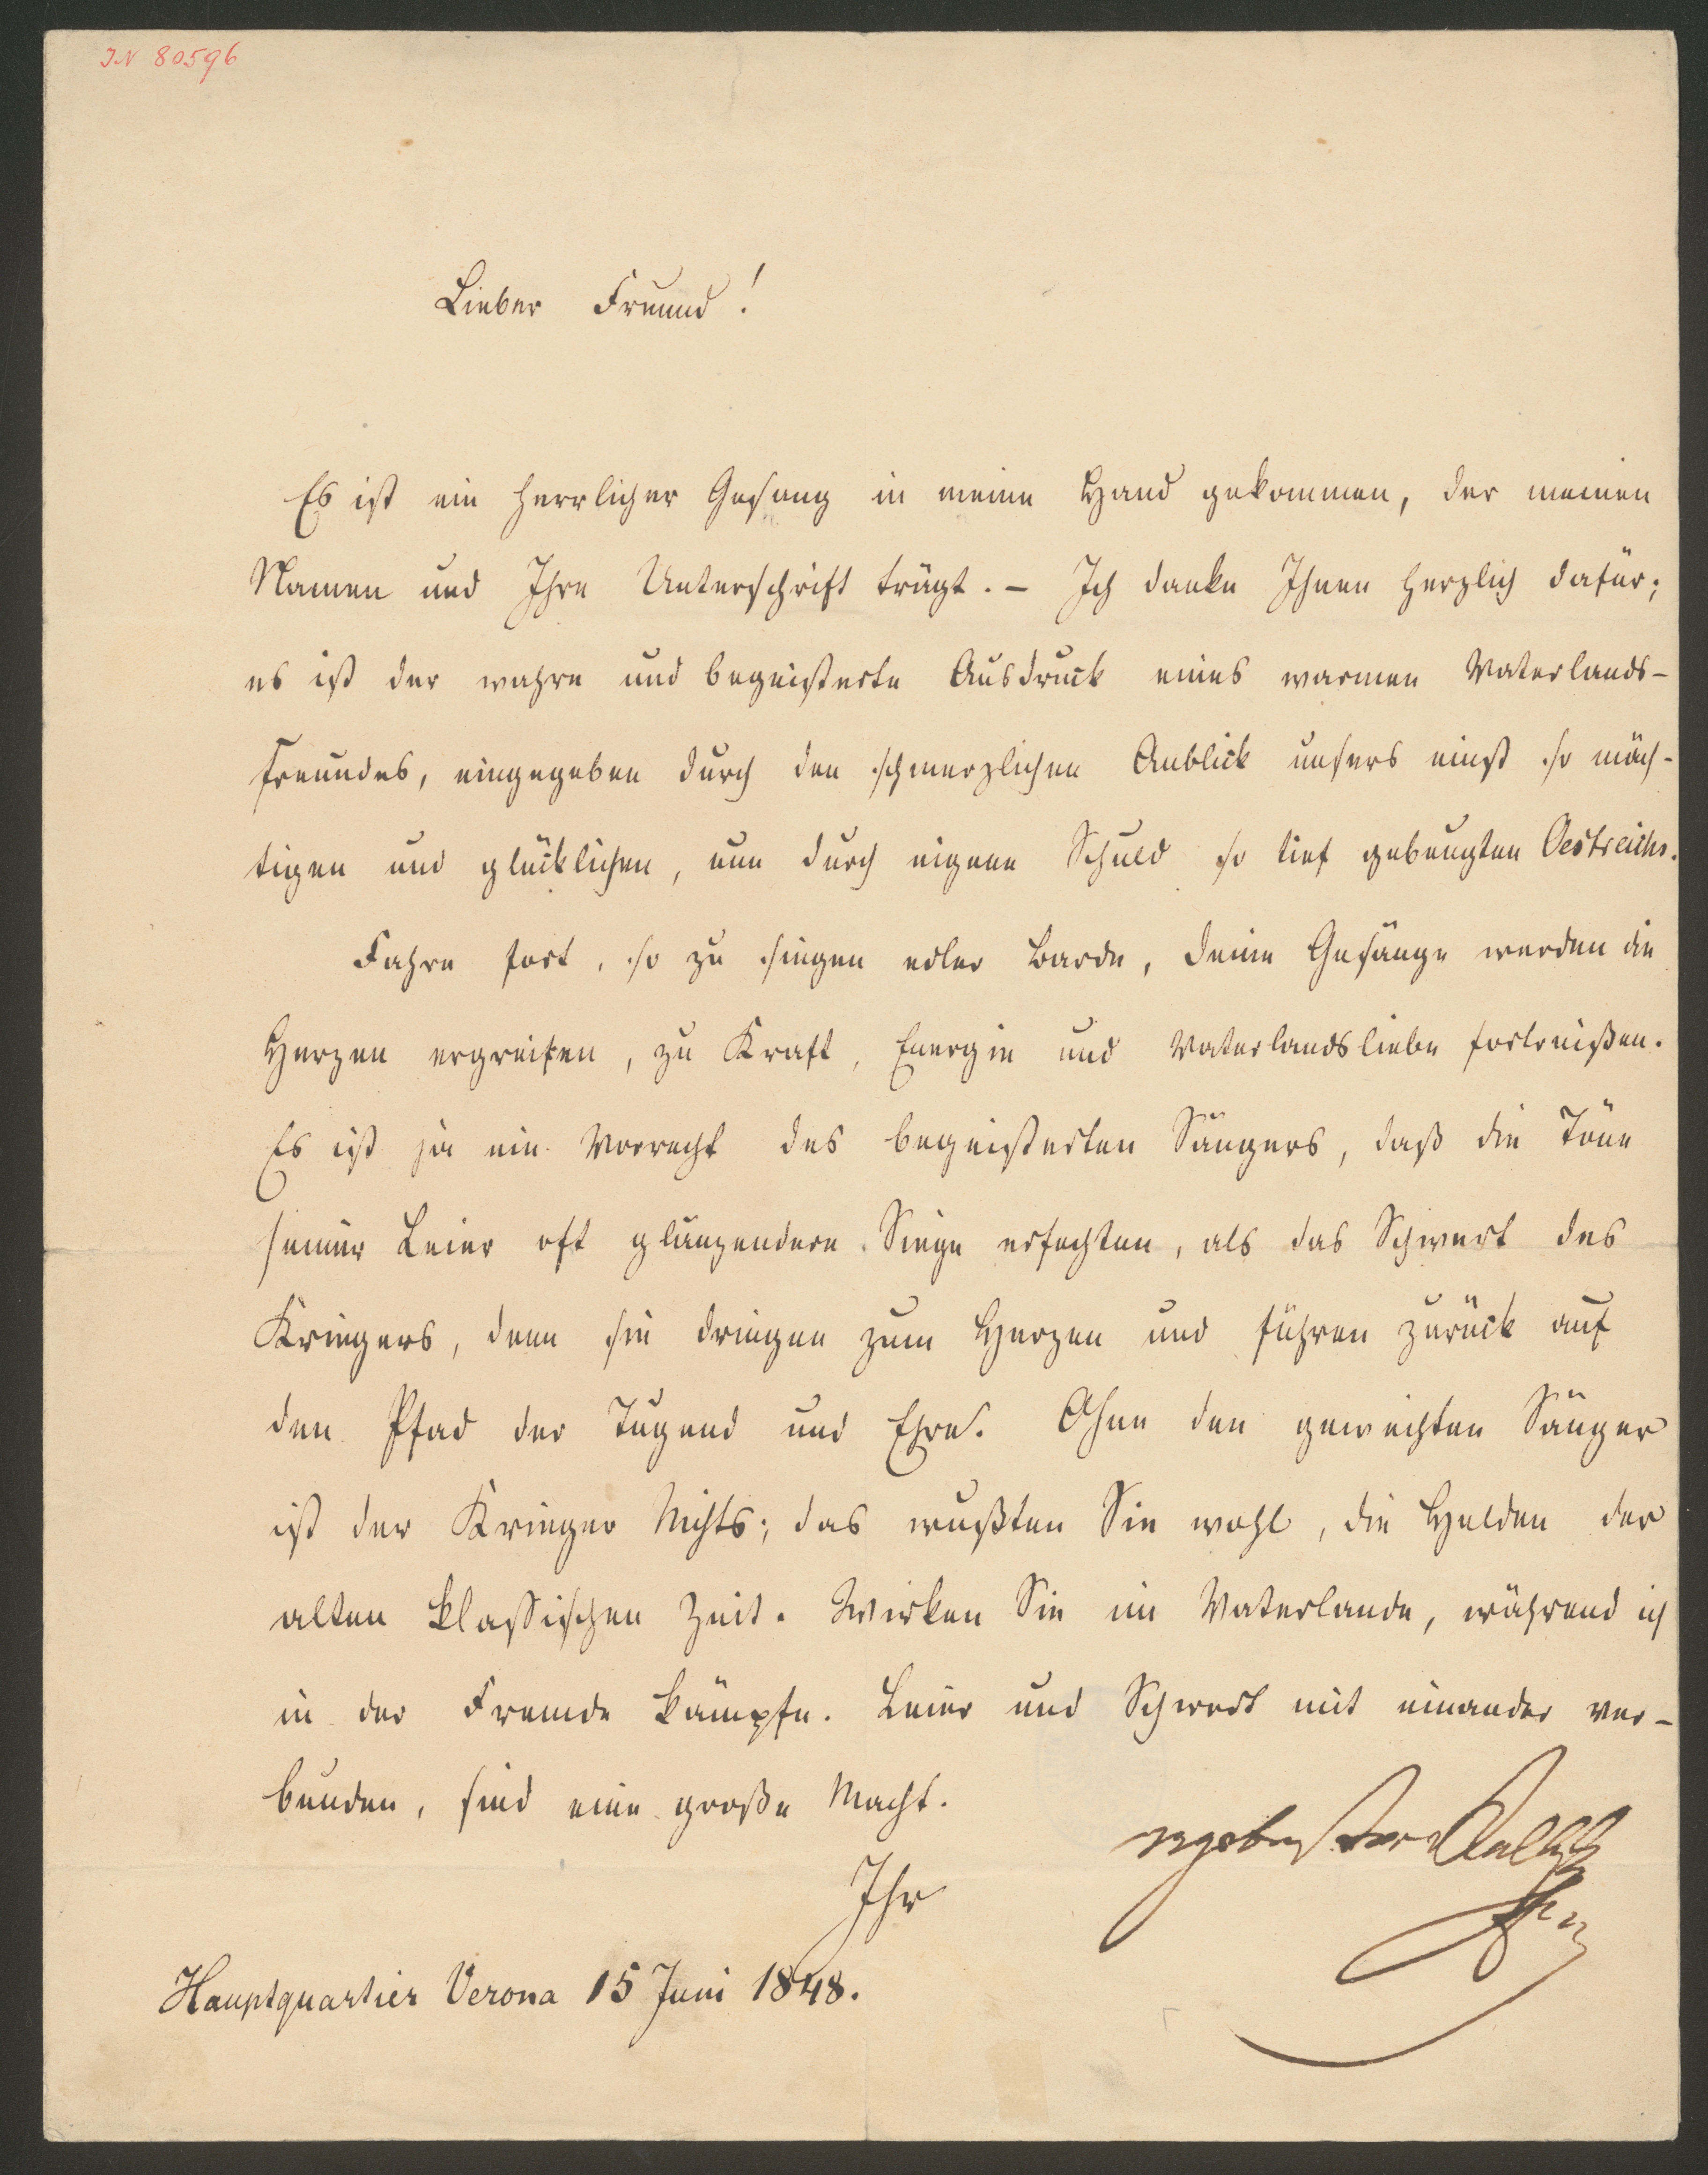 IN 80596
Lieber Freund!
Es ist ein herrlicher Gesang in meine Hand gekommen, der meinen
Namen und Ihre Unterschrift trägt. – Ich danke Ihnen herzlich dafür;
es ist der wahre und begeisterte Ausdruck eines warmen Vaterlands-
freundes, eingegeben durch den schmerzlichen Anblick unsers einst so mäch-
tigen und glücklichen, nun durch eigene Schuld so tief gebeugten Oestreichs.
Fahre fort, so zu singen edler Barde, deine Gesänge werden die
Herzen ergreifen, zu Kraft, Energie und Vaterlandsliebe fortreißen.
Es ist ja ein Vorrecht des begeisterten Sängers, daß die Töne
seiner Leier oft glänzendere Siege erfechten, als das Schwert des
Kriegers, denn sie dringen zum Herzen und führen zurück auf
den Pfad der Tugend und Ehre. Ohne den geweihten Sänger
ist der Krieger Nichts; das wußten Sie wohl, die Helden der
alten klassischen Zeit. Wirken Sie im Vaterlande, während ich
in der Fremde kämpfe. Leier und Schwert mit einander ver-
bunden, sind eine große Macht.
Ihr
ergebenster
Hauptquartier Verona 15 Juni 1848.